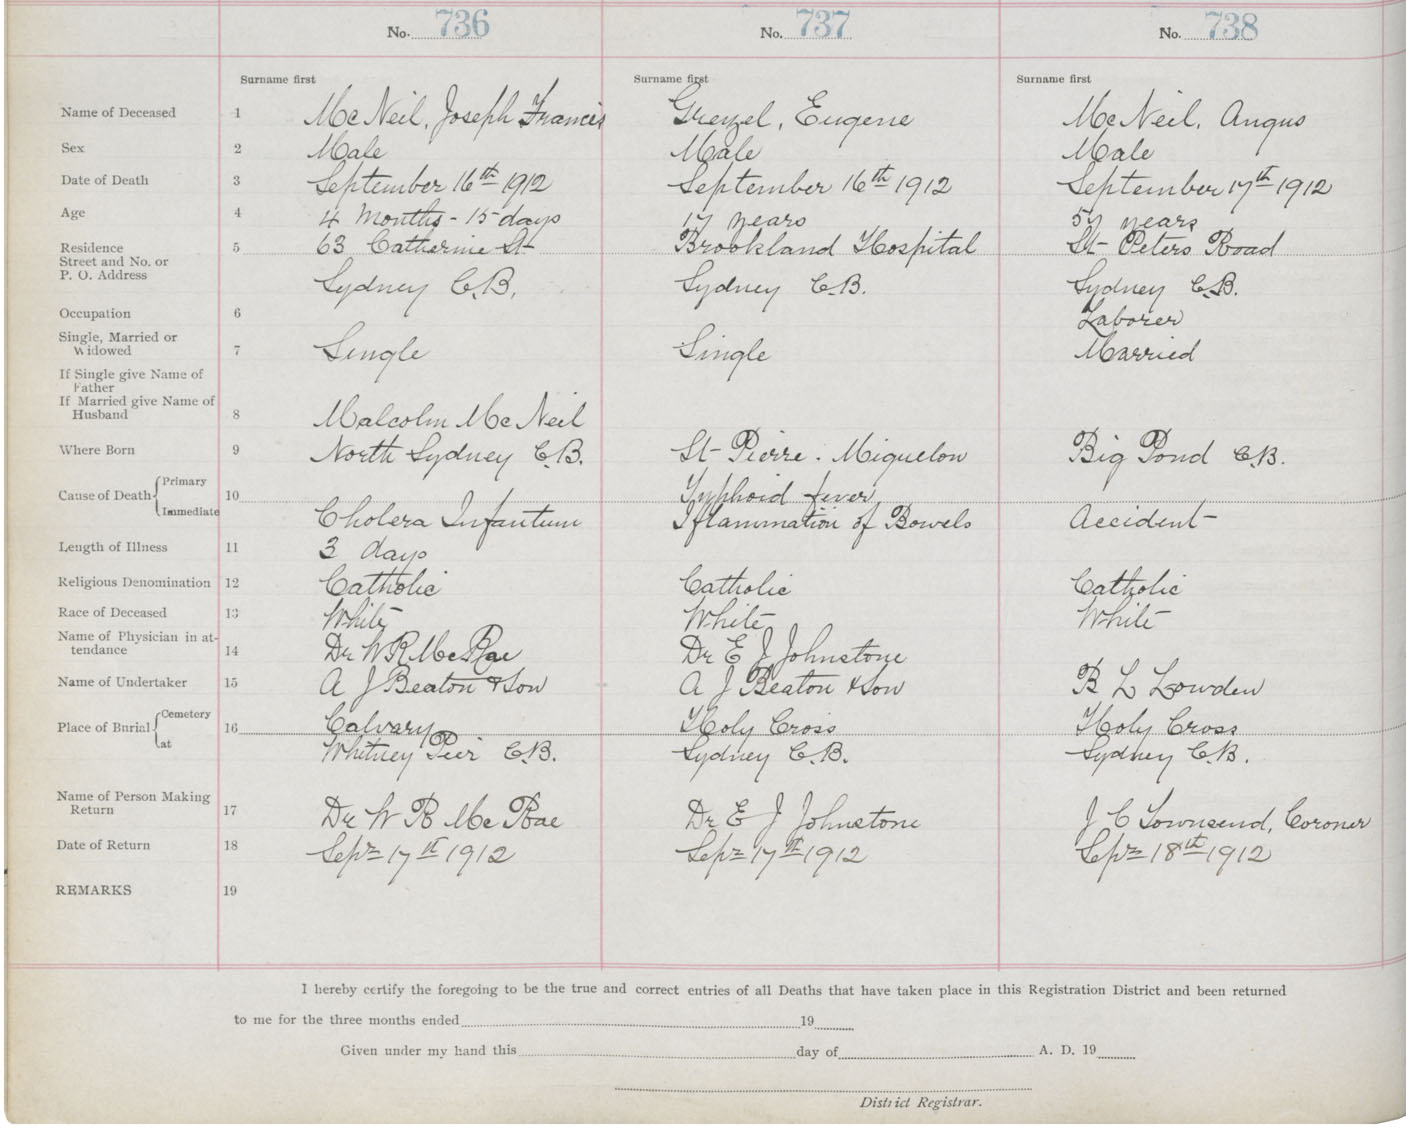 No. 736 No. 737 No. 738
Surname first Surname first Surname first
Name of Deceased 1 McNeil, Joseph Francis Grezel, Eugene McNeil, Angus
Sex 2 Male Male Male
Date of Death 3 September 16th 1912 September 16th 1912 September 17th 1912
Age 4 4 Months - 15 days 17 years 57 years
Residence 5 63 Catherine St Brookland Hospital St Peters Road
Street and No. or
P. O. Address Sydney C.B. Sydney C.B. Sydney C.B.
Occupation 6 Laborer
Single, Married or
Widowed 7 Single Single Married
If Single give Name of
Father
If Married give Name of
Husband 8 Malcolm McNeil
Where Born 9 North Sydney C.B. St Pierre. Miquelon Big Pond C.B.
Cause of Death Primary 10 Typhoid fever
Immediate Cholera Infantum Iflammation of Bowels Accident
Length of Illness 11 3 days
Religious Denomination 12 Catholic Catholic Catholic
Race of Deceased 13 White White White
Name of Physician in at-
tendance 14 Dr W R McRae Dr E J Johnstone
Name of Undertaker 15 A J Beaton & Son A J Beaton & Son B L Lowden
Place of Burial Cemetery 16 Calvary Holy Cross Holy Cross
at Whitney Pier C.B. Sydney C.B. Sydney C.B.
Name of Person Making
Return 17 Dr W R McRae Dr E J Johnstone J C Townsend, Coroner
Date of Return 18 Sepr 17th 1912 Sepr 17th 1912 Sepr 18th 1912
REMARKS 19
I hereby certify the foregoing to be the true and correct entries of all Deaths that have taken place in this Registration District and been returned
to me for the three months ended 19
Given under my hand this day of A. D. 19
District Registrar.